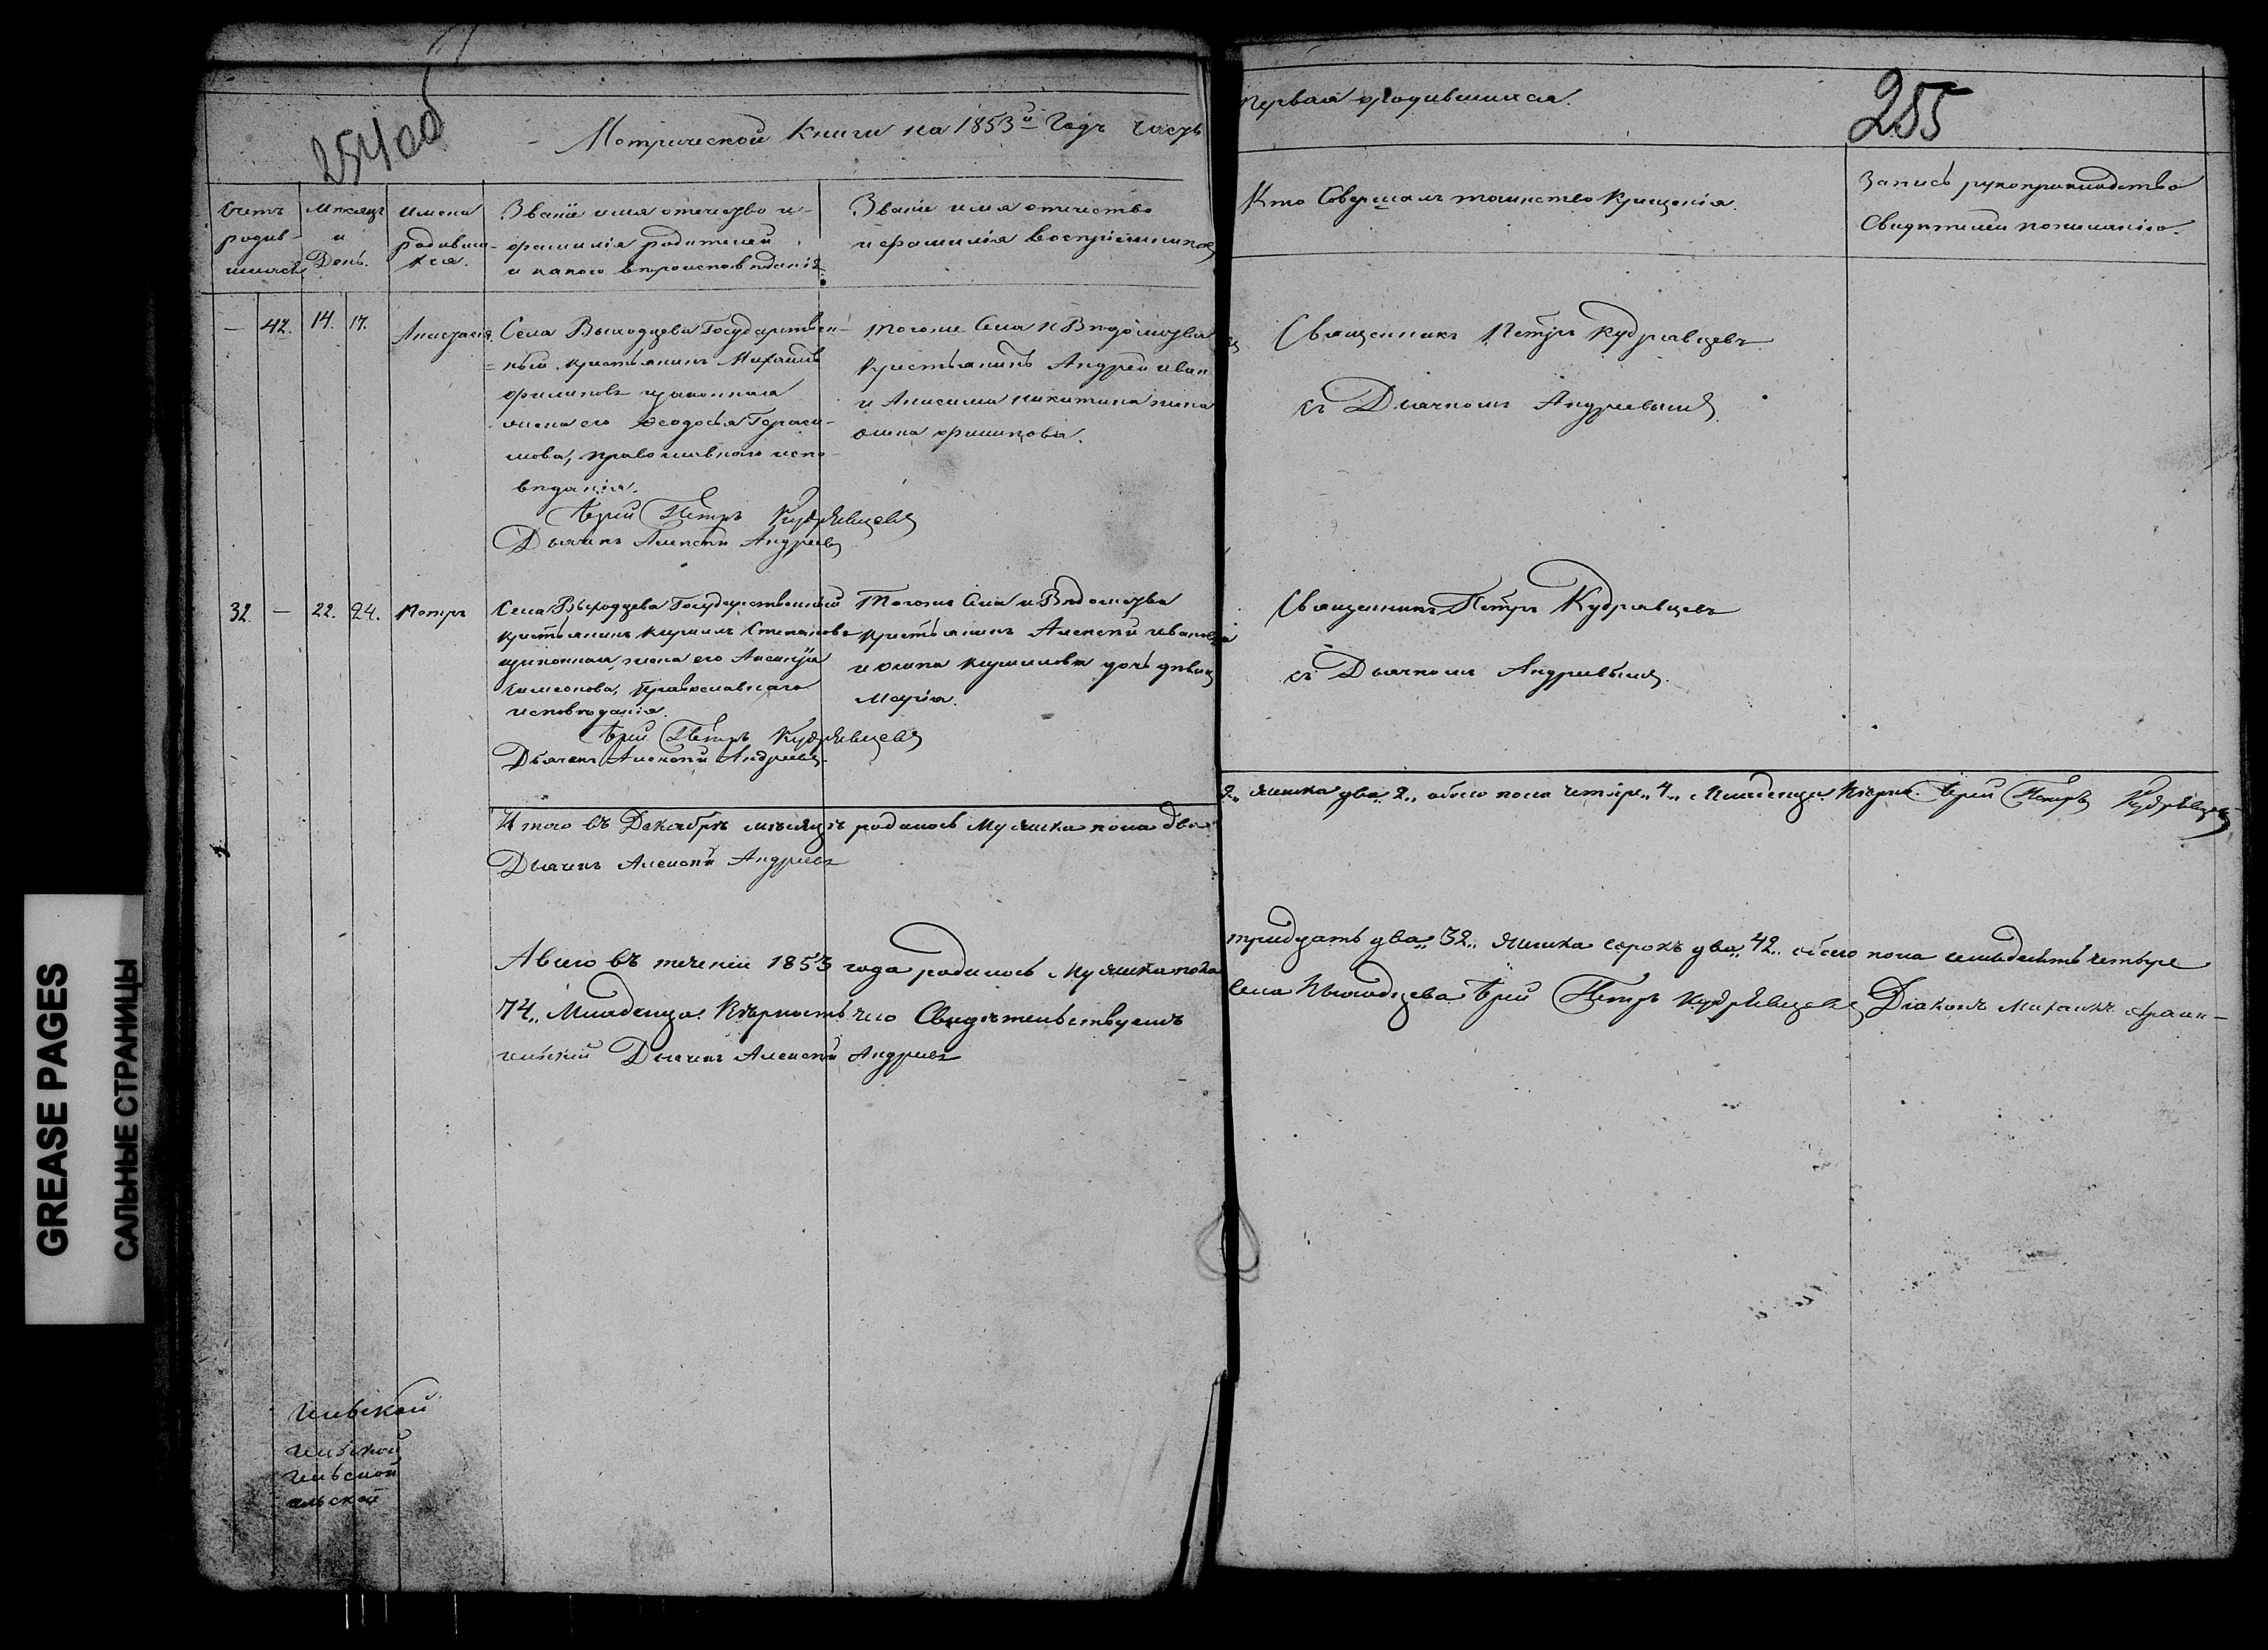 254 об
Метрической Книги на 1853й Годъ часть
первая о родившихся.
255
Счетъ родив- шихся
Месяцъ и День.
Имена родивши- хся.
Званіе имя отечество и
фамилія родителей
и какого вѣроисповѣданія.
Званіе имя отечество
и фамилія воспріемниковъ
Кто Совершалъ таинство Крещенія.
Запись рукоприкладство
Свидѣтелей пожеланію.
— 42. 14. 17. Анастасія.
Села Выходцева Государствен-
ный крестьянинъ Михаилъ
Филиповъ изаконная
жена его Ѳеодосья Гераси-
мова, православнаго испо-
вѣданія.
Іерей Петръ Кудрявцевъ
Дьячекъ Алексѣй Андреевъ
тогоже Села и Вѣдомства
Крестьянинъ Андрей Иван
и Анисима Никитина жена
Филипова.
Священникъ Петръ Кудрявцевъ
съ Дьячкомъ Андреевымъ.
32. — 22. 24. Петръ
Села Выходцева Государственный
крестьянинъ Кирилъ Степановъ
изаконная жена его
Симеонова, Православнаго
исповѣданія.
Іерей Петръ Кудрявцевъ
Дьячекъ Алексѣй Андреевъ.
Тогоже Села и Вѣдомства
крестьянинъ Алексѣй Ивановъ
и Кирилова дочь дѣвица
Марія.
Священникъ Петръ Кудрявцевъ
съ Дьячкомъ Андреевымъ.
Итого въ Декабрѣ мѣсяцѣ родилось Мужеска пола два
2„ женска два„ 2„ обоего пола четыре„ 4„ Младенца. Вѣрно. Іерей Петръ Кудрявцевъ
Дьячекъ Алексѣй Андреевъ
А всего въ теченіи 1853 года родилось Мужеска пола
тридцать два„ 32„ женска сорокъ два„ 42„ обоего пола семьдесятъ четыре
74„ Младенца. Вѣрность чего Свидѣтельствуемъ
Села Выходцева Іерей Петръ Кудрявцевъ Діаконъ Михаилъ
Дьячекъ Алексѣй Андреевъ
GREASE PAGES
САЛЬНЫЕ СТРАНИЦЫ